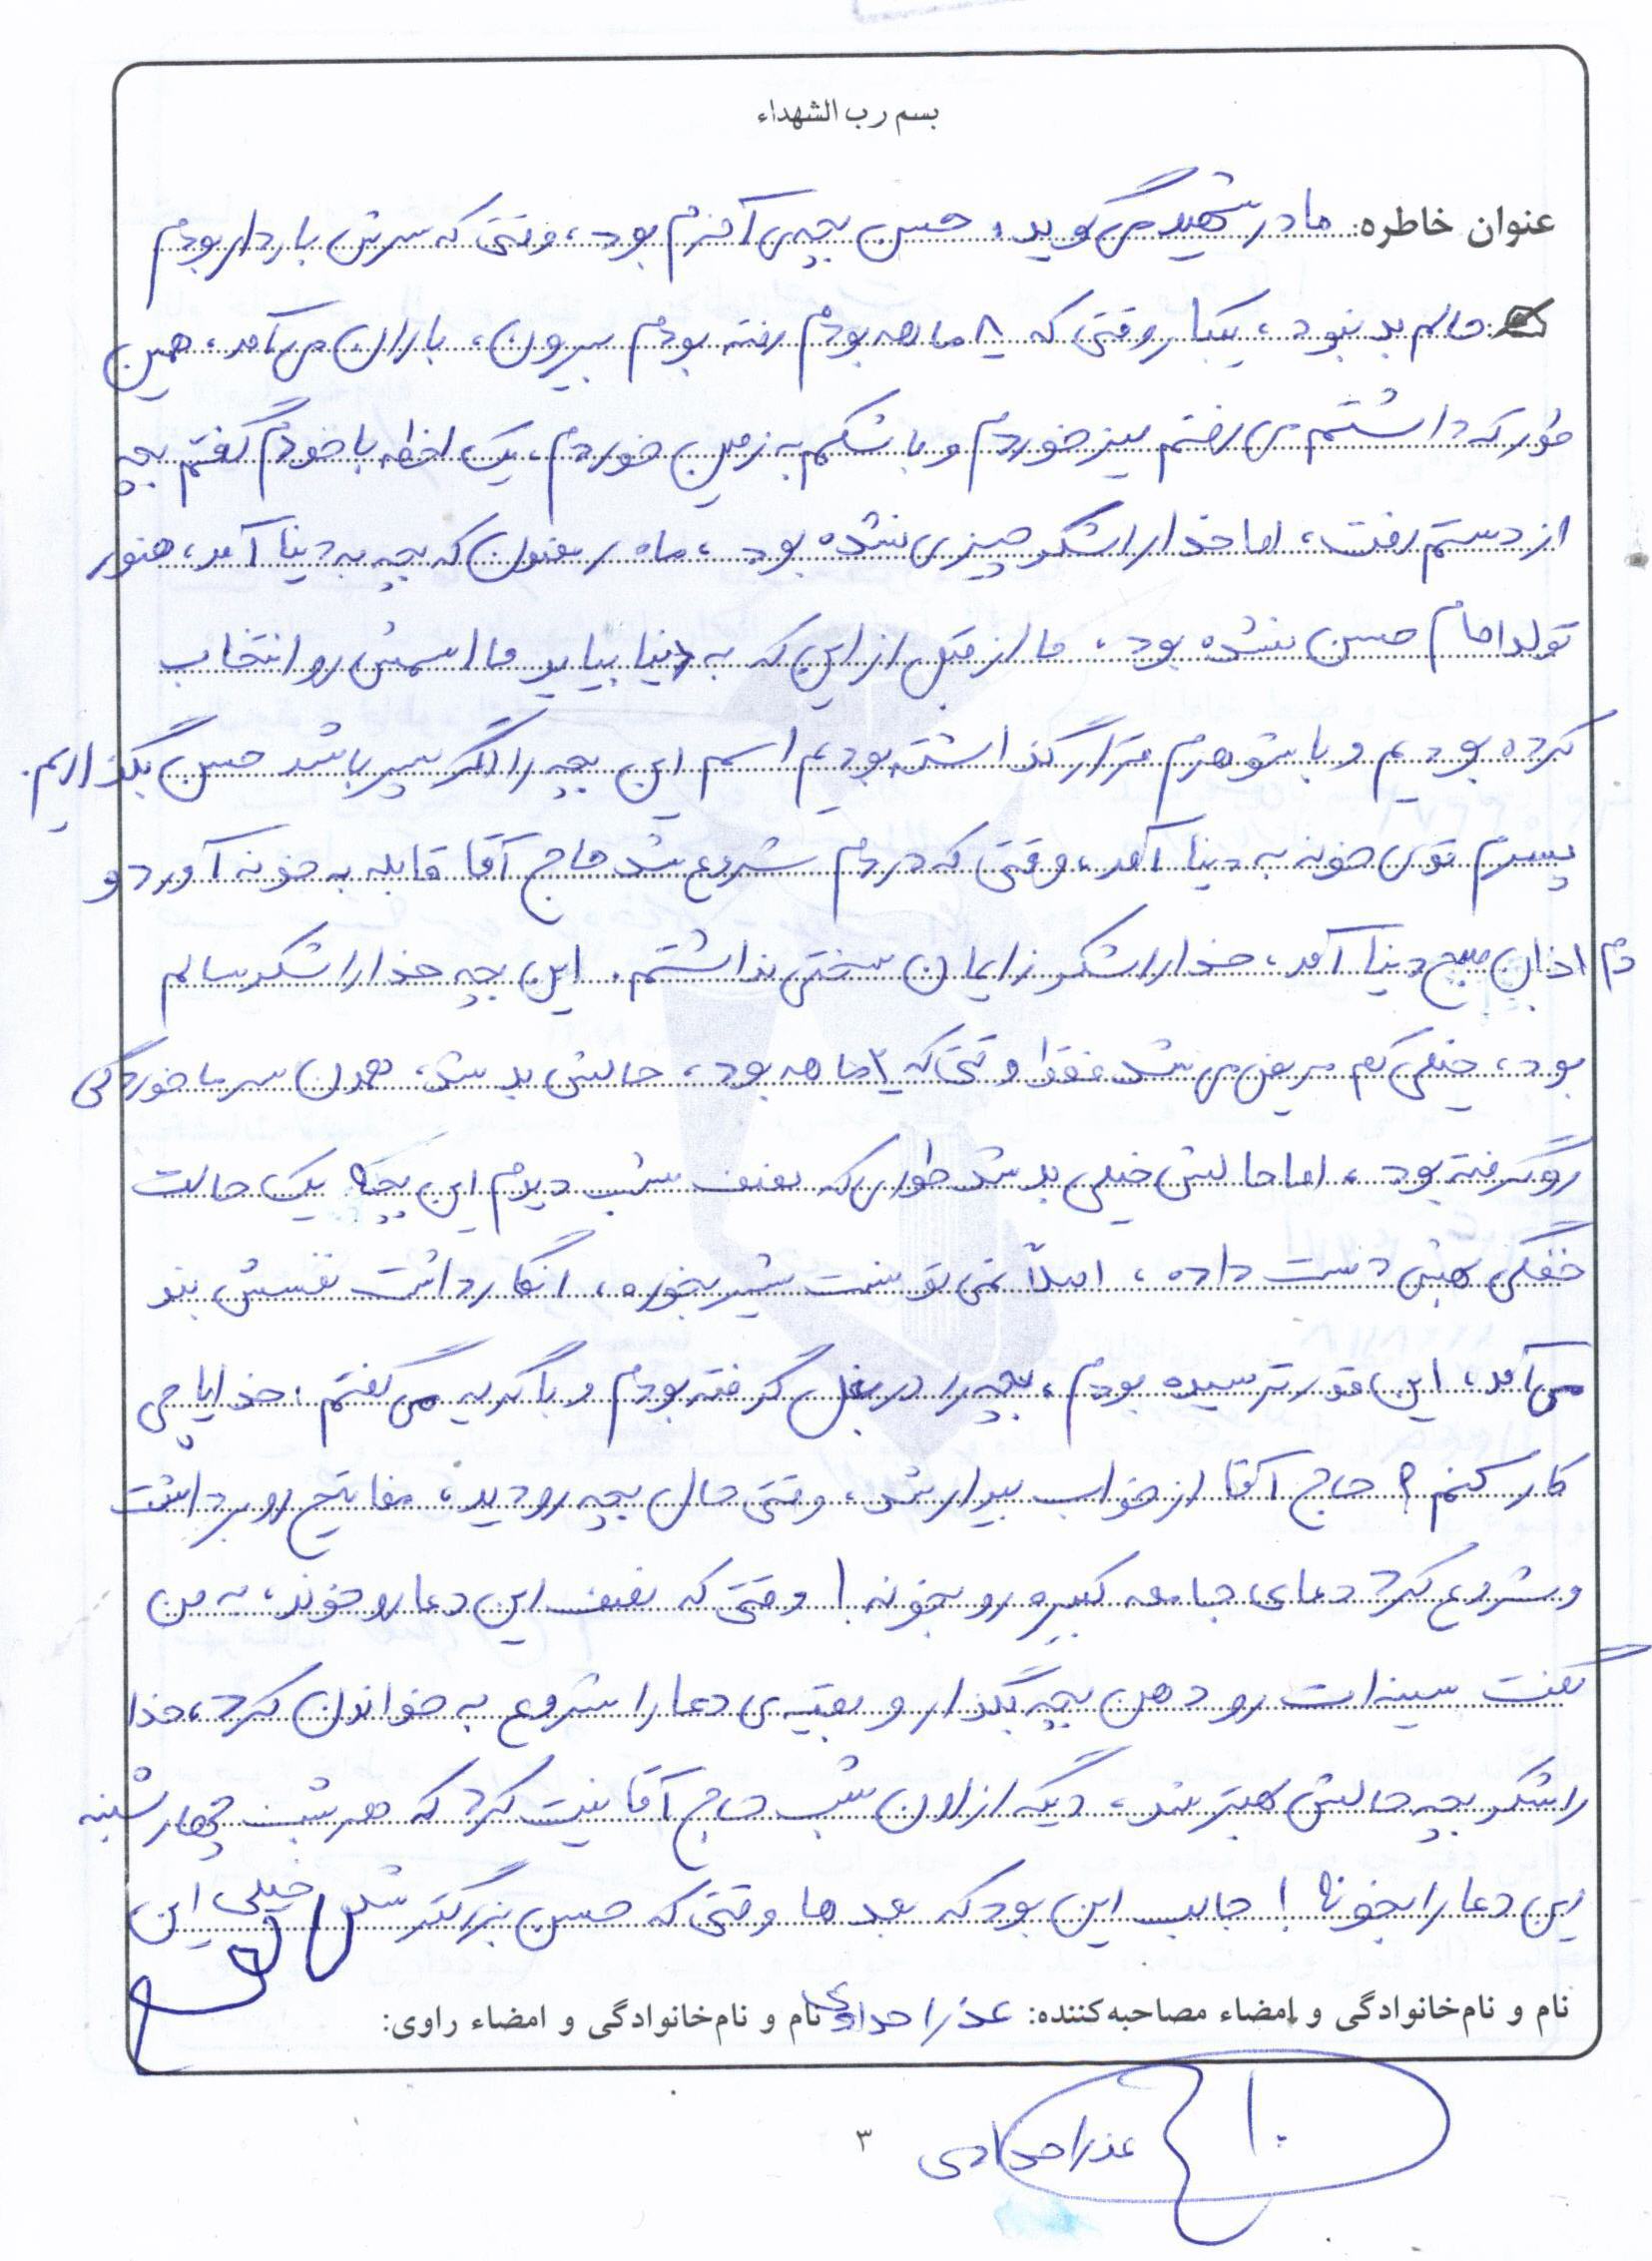 بسم رب الشهداء
عنوان خاطره: مادر شهید می گوید: حسن بچه‌ی آخرم بود، وقتی که سرش باردار بودم
حالم بد نبود، یکبار وقتی که ۸ ماهه بودم رفته بودم بیرون، باران می‌آمد، همین
طور که داشتم می رفتم لیز خوردم و با شکم به زمین خوردم، یک لحظه با خودم گفتم بچه
از دستم رفت، اما خدا را شکر چیزی نشده بود، ماه رمضون که بچه به دنیا آمد، هنوز
تولد امام حسن نشده بود، ما از قبل از این که به دنیا بیاید ما اسمش رو انتخاب
کرده بودیم و با شوهرم قرار گذاشته بودیم اسم این بچه را اگر پسر باشد حسن بگذاریم.
پسرم توی خونه به دنیا آمد، وقتی که دردم شروع شد حاج آقا قابله به خونه آورد و
دم اذان صبح دنیا آمد، خدا را شکر زایمان سختی نداشتم. این بچه خدا را شکر سالم
بود، خیلی کم مریض می شد فقط وقتی که ۲ ماهه بود، حالش بد شد، همون سرماخوردگی
رو گرفته بود، اما حالش خیلی بد شد طوری که نصف شب دیدم این بچه یک حالت
خفگی بهش دست داده، اصلاً نمی تونست شیر بخوره، انگار داشت نفسش بند
می آمد، این قدر ترسیده بودم، بچه را در بغل گرفته بودم و با گریه می گفتم: خدایا چی
کار کنم؟ حاج آقا از خواب بیدار شد، وقتی حال بچه رو دید، مفاتیح رو برداشت
و شروع کرد دعای جامعه کبیره رو بخونه! وقتی که نصف این دعا رو خوند، به من
گفت سینه‌ات رو دهن بچه بگذار و بقیه‌ی دعا را شروع به خواندن کرد، خدا
را شکر بچه حالش بهتر شد، دیگه از اون شب حاج آقا نیت کرد که هر شب چهارشنبه
این دعا را بخونه! جالب این بود که بعدها وقتی که حسن بزرگتر شد خیلی این
نام و نام‌خانوادگی و امضاء مصاحبه‌کننده: عذرا حدادی نام و نام‌خانوادگی و امضاء راوی:
عذرا حدادی
۳